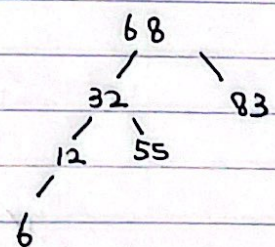 68
32 83
12 55
6